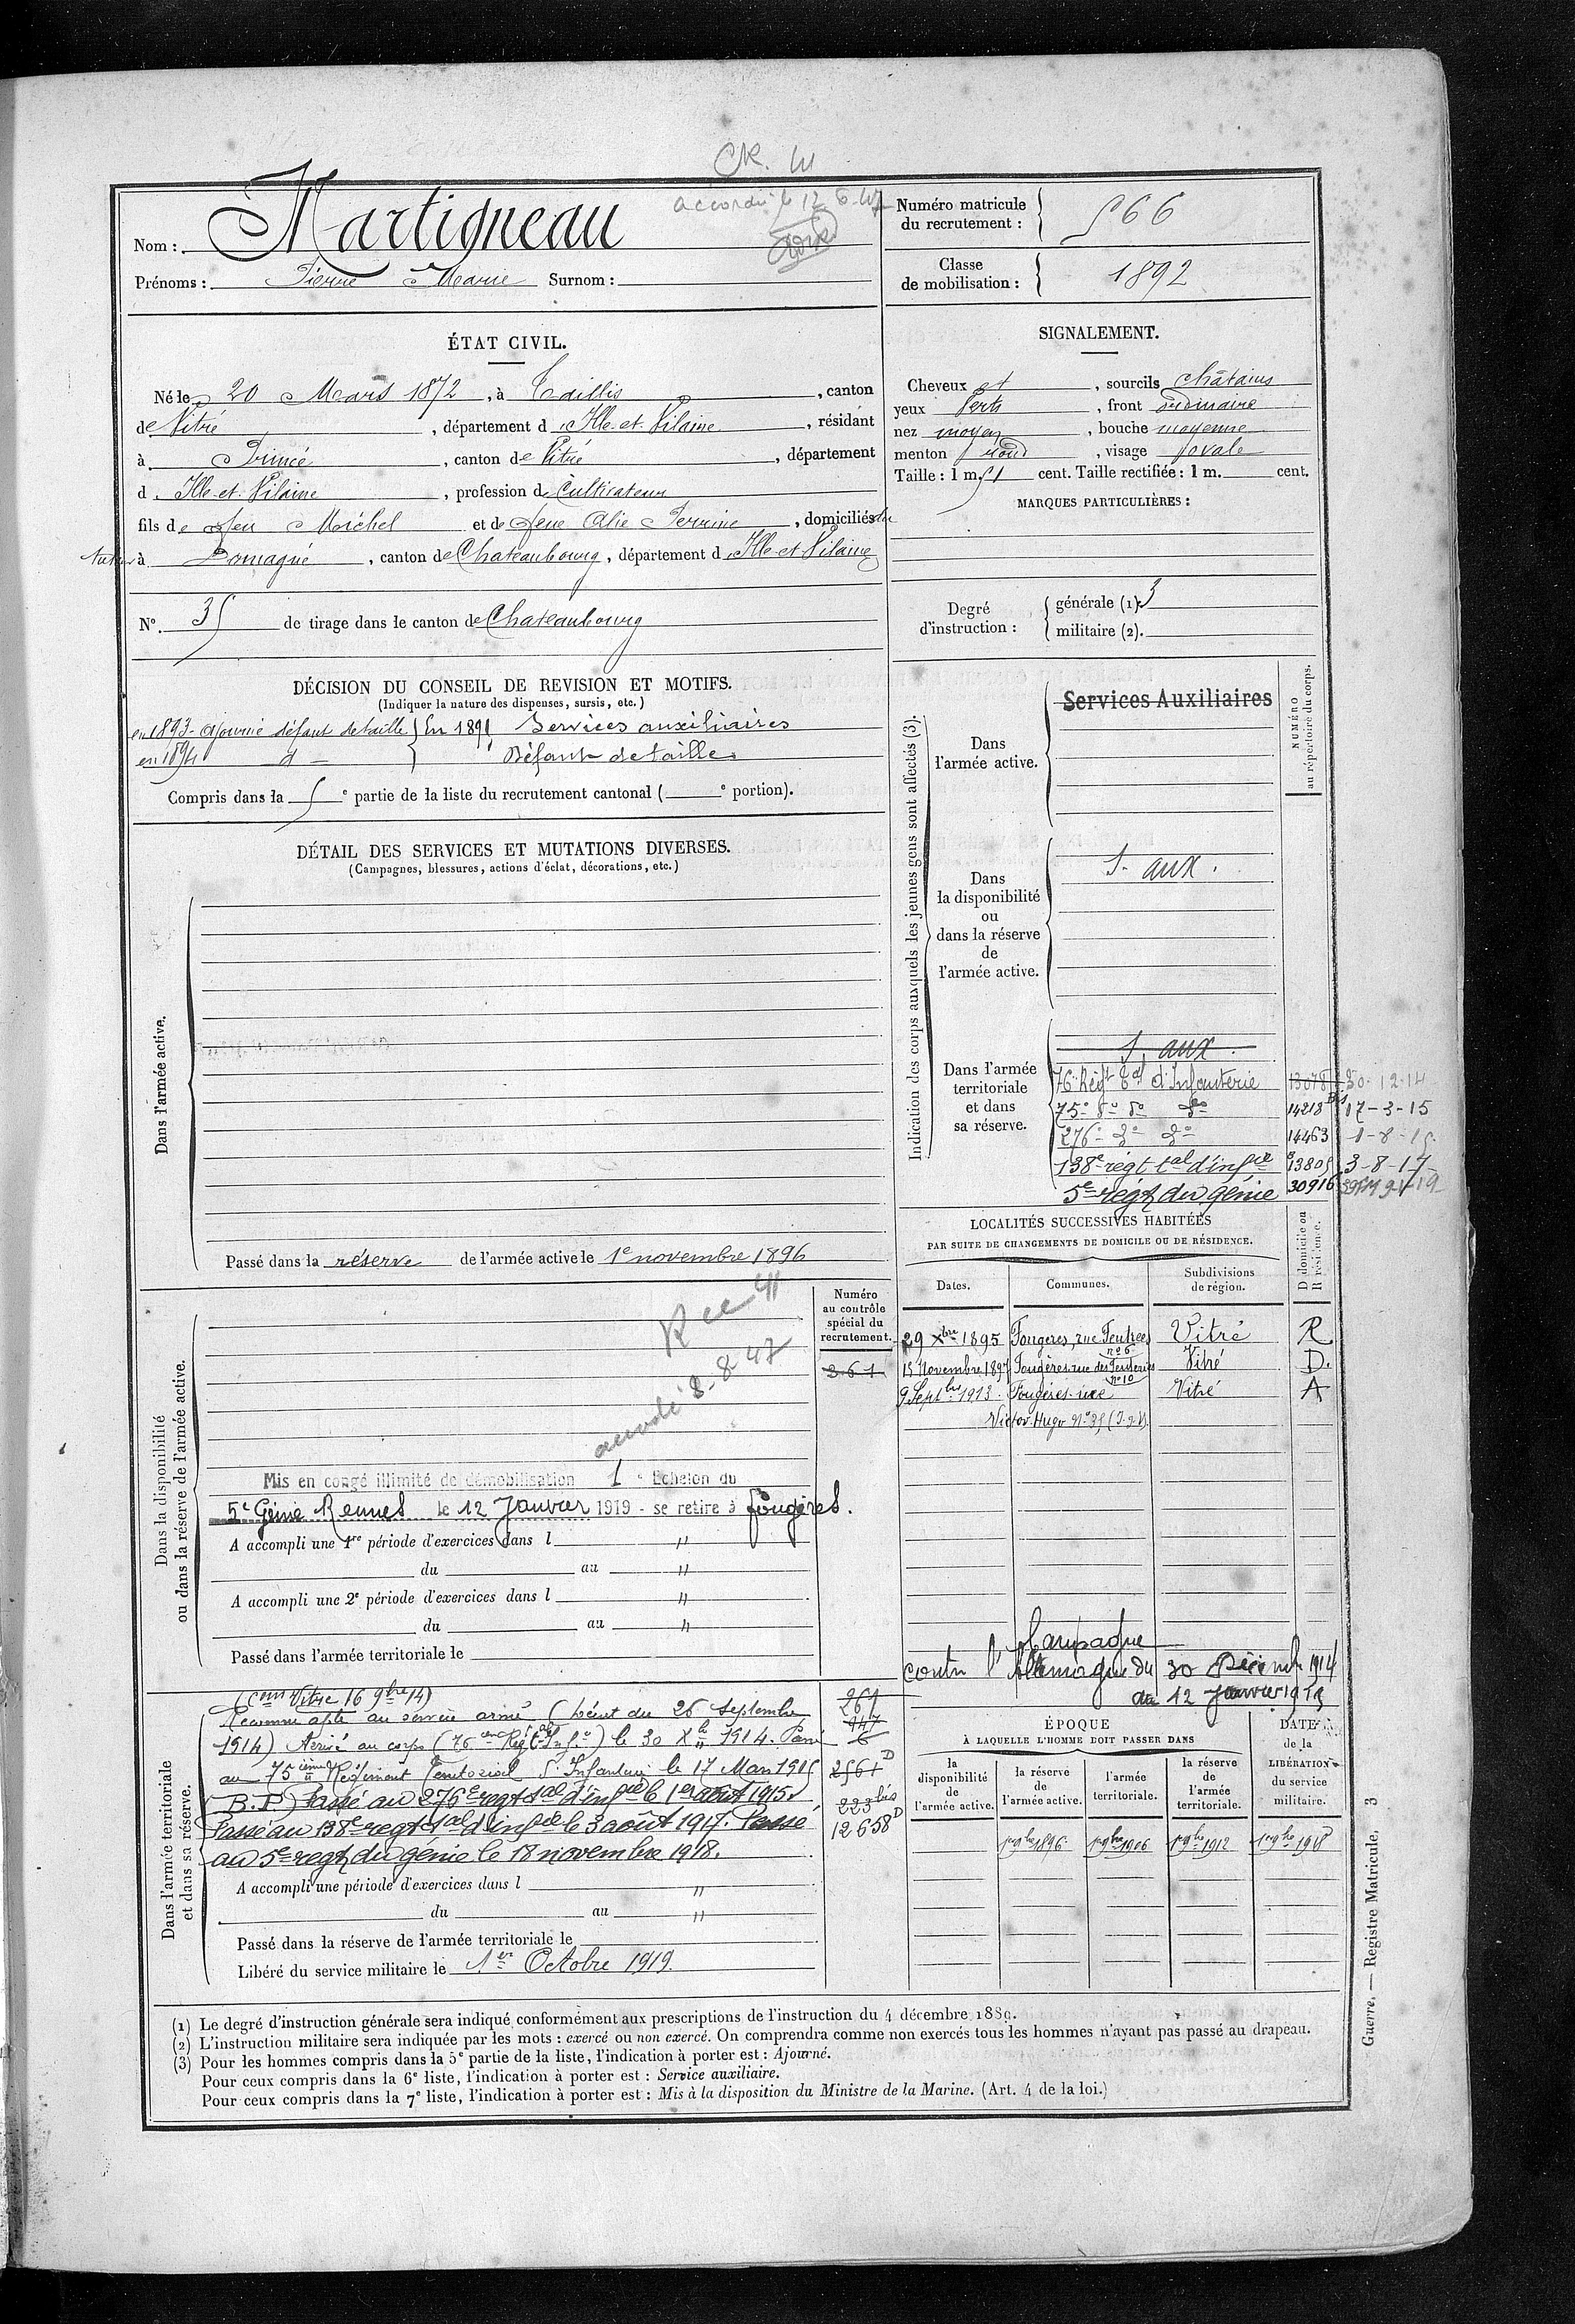 CR.
accordé le 12
Nom : Martigneau
Prénoms : Pierre Marie Surnom :
Numéro matricule du recrutement : 566
Classe de mobilisation : 1892
ÉTAT CIVIL.
Né le 20 Mars 1872, à Taillis, canton
de Vitré, département d'Ille-et-Vilaine, résidant
à Princé, canton de Vitré, département
d'Ille-et-Vilaine, profession de Cultivateur
fils de feu Michel et de feue Perrine, domiciliés
tuteur à Domagné, canton de Chateaubourg, département d'Ille-et-Vilaine
N° 35 de tirage dans le canton de Chateaubourg
SIGNALEMENT.
Cheveux et, sourcils châtains
yeux Verts, front ordinaire
nez moyen, bouche moyenne
menton rond, visage ovale
Taille : 1 m. 51 cent. Taille rectifiée : 1 m. cent.
MARQUES PARTICULIÈRES :
Degré d'instruction : générale (1). 3
militaire (2).
DÉCISION DU CONSEIL DE REVISION ET MOTIFS.
(Indiquer la nature des dispenses, sursis, etc.)
en 1893 - ajourné défaut de taille } En 1895 Services auxiliaires
en 1894 - d - } Défaut de taille
Compris dans la 5e partie de la liste du recrutement cantonal ( e portion).
DÉTAIL DES SERVICES ET MUTATIONS DIVERSES.
(Campagnes, blessures, actions d'éclat, décorations, etc.)
Dans l'armée active.
Passé dans la réserve de l'armée active le 1e novembre 1896
Indication des corps auxquels les jeunes gens sont affectés (3).
NUMÉRO au répertoire du corps.
Dans l'armée active.
Services Auxiliaires
Dans la disponibilité ou dans la réserve de l'armée active.
S. aux.
Dans l'armée territoriale et dans sa réserve.
S. aux.
76e Régt Tal d'Infanterie 13078 30-12-14
75e do do do 14218 Bis 17-3-15
276e do do 14463 1-8-15
138e régt tal d'infie 13805 3-8-17
5e régt du génie 30916
LOCALITÉS SUCCESSIVES HABITÉES
PAR SUITE DE CHANGEMENTS DE DOMICILE OU DE RÉSIDENCE.
Dates. Communes. Subdivisions de région. D domicile ou R résidence.
29 Xbre 1895 Fougères, rue Vitré R
n° 6
15 Novembre 1897 Fougères rue des Vitré D.
n° 10
9 Septbre 1913 Fougères rue Vitré A
Victor Hugo N° 35
Dans la disponibilité ou dans la réserve de l'armée active.
Numéro au contrôle spécial du recrutement.
361
8-8-47
Mis en congé illimité de démobilisation 1e Echelon du
5e Génie Rennes le 12 Janvier 1919 - se retire à Fougères.
A accompli une 1re période d'exercices dans l "
du au "
A accompli une 2e période d'exercices dans l "
du au "
Passé dans l'armée territoriale le
Campagne
contre l'Allemagne du 30 Décembre 1914
au 12 Janvier 1919
Dans l'armée territoriale et dans sa réserve.
(Com Vitré 16 9bre 14)
Reconnu apte au service armé (Décret du 26 Septembre
1914) Arrivé au corps (76e Régt) le 30 Xbre 1914. Passé
au 75ième Régiment Territorial d'Infanterie le 17 Mars 1915
(B.P.) Passé au 276e regt tal d'infie le 1er août 1915.
Passé au 138e regt tal d'infie le 3 août 1917. Passé
au 5e regt du génie le 18 novembre 1918.
947
2561 D
223 bis
12658 D
A accompli une période d'exercices dans l "
du au "
Passé dans la réserve de l'armée territoriale le
Libéré du service militaire le 1er Octobre 1919.
ÉPOQUE
À LAQUELLE L'HOMME DOIT PASSER DANS
DATE de la LIBÉRATION du service militaire.
la disponibilité de l'armée active.
la réserve de l'armée active.
l'armée territoriale.
la réserve de l'armée territoriale.
1er 9bre 1896 1er 9bre 1906 1er 9bre 1912 1er 9bre 1918
(1) Le degré d'instruction générale sera indiqué conformément aux prescriptions de l'instruction du 4 décembre 1889.
(2) L'instruction militaire sera indiquée par les mots : exercé ou non exercé. On comprendra comme non exercés tous les hommes n'ayant pas passé au drapeau.
(3) Pour les hommes compris dans la 5e partie de la liste, l'indication à porter est : Ajourné.
Pour ceux compris dans la 6e liste, l'indication à porter est : Service auxiliaire.
Pour ceux compris dans la 7e liste, l'indication à porter est : Mis à la disposition du Ministre de la Marine. (Art. 4 de la loi.)
Guerre. — Registre Matricule. 3